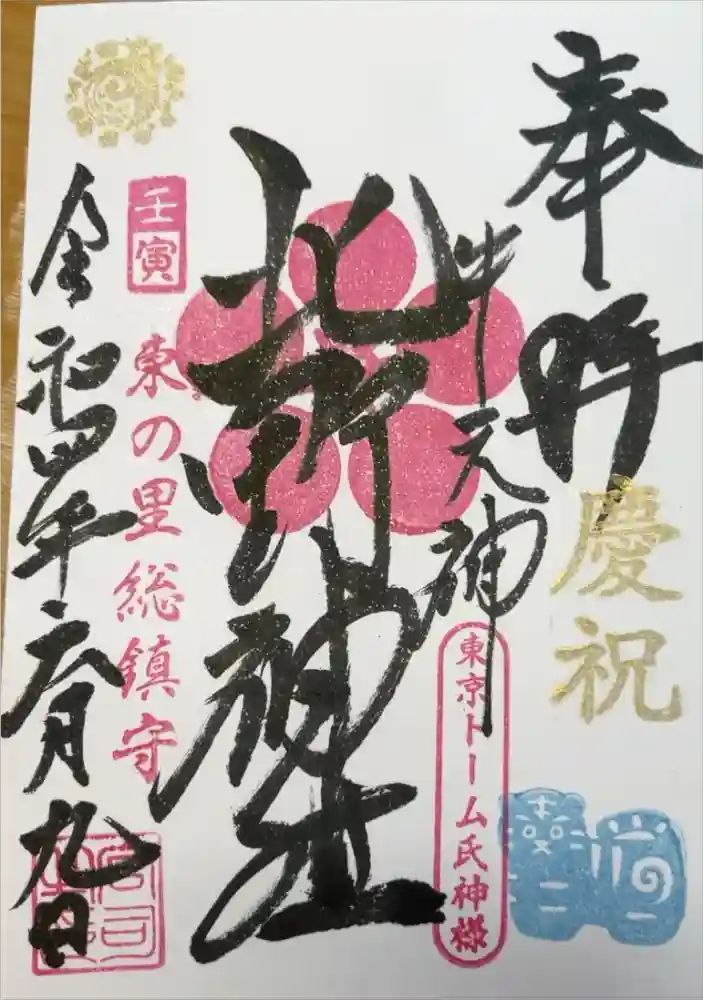 奉拝
慶祝
牛天神
東京ドーム氏神様
北野神社
壬寅
東の里総鎮守
令和四年六月九日